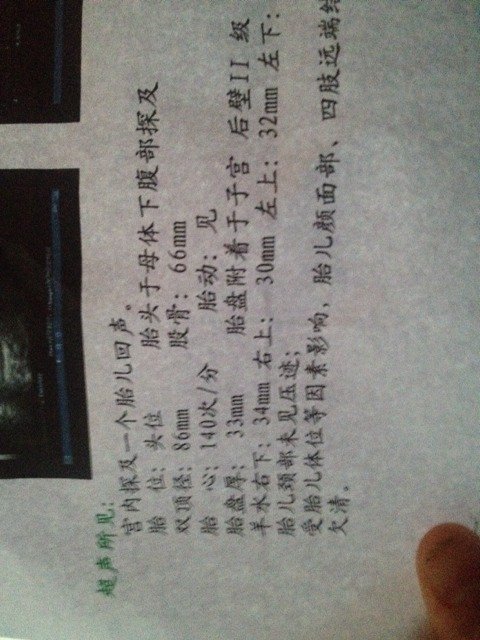 超声所见:
宫内探及一个胎儿回声。
胎 位: 头位 胎头于母体下腹部探及
双顶径: 86mm 股骨: 66mm
胎 心: 140次/分 胎动: 见
胎盘厚: 33mm 胎盘附着于子宫 后壁II 级
羊水右下: 34mm 右上: 30mm 左上: 32mm 左下:
胎儿颈部未见压迹;
受胎儿体位等因素影响, 胎儿颜面部、四肢远端
欠清。